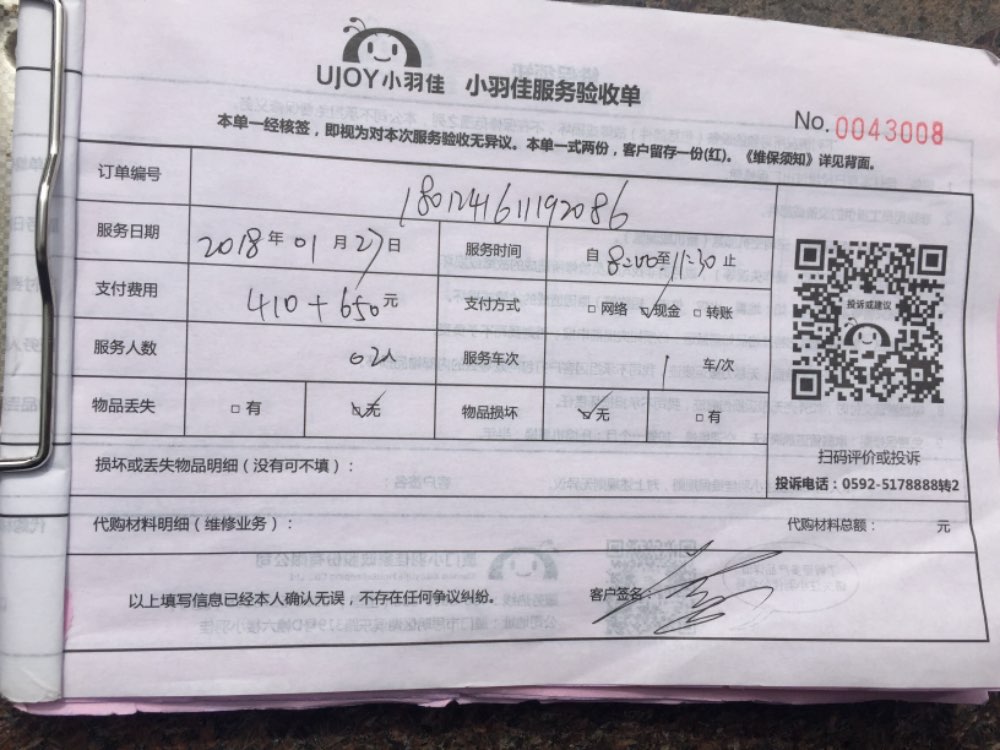 UJOY小羽佳 小羽佳服务验收单
No. 0043008
本单一经核签，即视为对本次服务验收无异议。本单一式两份，客户留存一份(红)。《维保须知》详见背面。
订单编号 1801241611192086
服务日期 2018年01月27日 服务时间 自8:00至11:30止
支付费用 410+650元 支付方式 □网络 ☑现金 □转账
服务人数 02人 服务车次 1 车/次
物品丢失 □有 ☑无 物品损坏 ☑无 □有
投诉或建议
扫码评价或投诉
投诉电话：0592-5178888转2
损坏或丢失物品明细（没有可不填）：
代购材料明细（维修业务）： 代购材料总额： 元
以上填写信息已经本人确认无误，不存在任何争议纠纷。 客户签名：